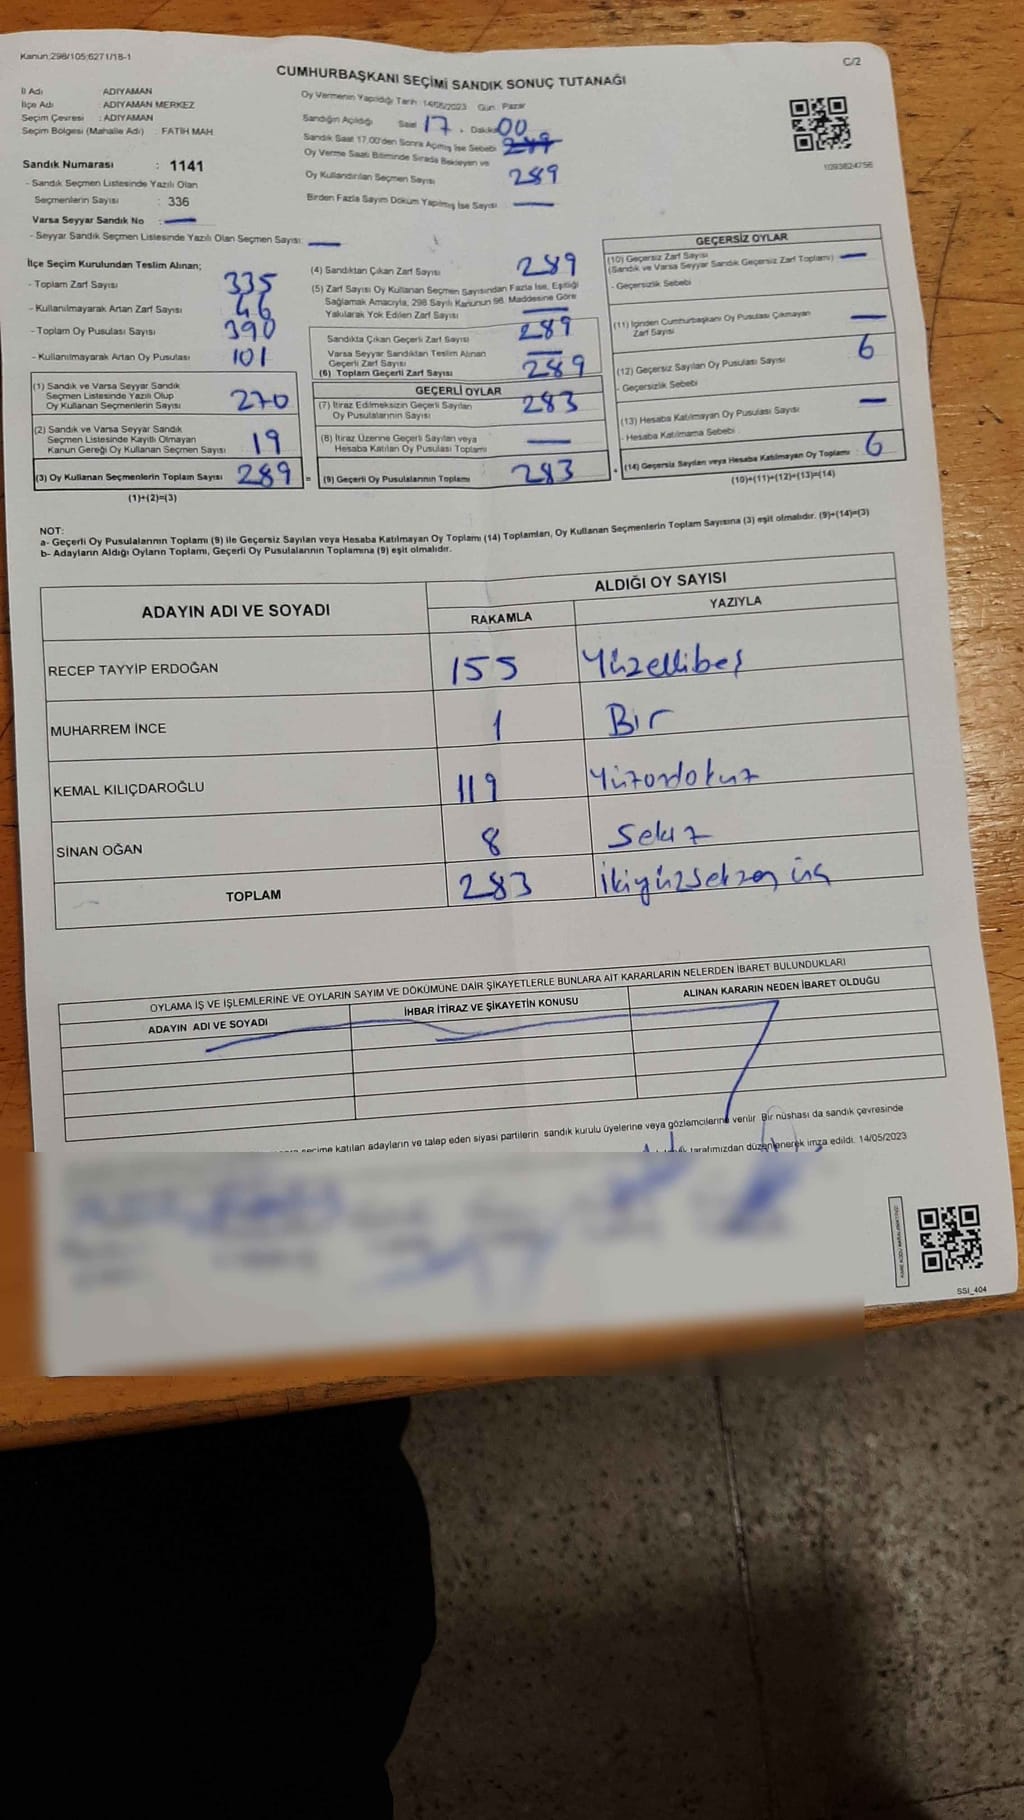 Kanun:298/105;6271/18-1
C/2
CUMHURBAŞKANI SEÇİMİ SANDIK SONUÇ TUTANAĞI
İl Adı : ADIYAMAN
İlçe Adı : ADIYAMAN MERKEZ
Seçim Çevresi : ADIYAMAN
Seçim Bölgesi (Mahalle Adı) : FATİH MAH
Sandık Numarası : 1141
- Sandık Seçmen Listesinde Yazılı Olan
Seçmenlerin Sayısı : 336
Varsa Seyyar Sandık No : —
- Seyyar Sandık Seçmen Listesinde Yazılı Olan Seçmen Sayısı: —
Oy Vermenin Yapıldığı Tarih : 14/05/2023 Gün : Pazar
Sandığın Açıldığı Saat 17 . Dakika 00
Sandık Saat 17.00'den Sonra Açılmış İse Sebebi
Oy Verme Saati Bitiminde Sırada Bekleyen ve
Oy Kullandırılan Seçmen Sayısı 289
Birden Fazla Sayım Döküm Yapılmış İse Sayısı : —
1093624756
İlçe Seçim Kurulundan Teslim Alınan;
- Toplam Zarf Sayısı : 335
- Kullanılmayarak Artan Zarf Sayısı : 46
- Toplam Oy Pusulası Sayısı : 390
- Kullanılmayarak Artan Oy Pusulası : 101
(1) Sandık ve Varsa Seyyar Sandık
Seçmen Listesinde Yazılı Olup
Oy Kullanan Seçmenlerin Sayısı : 270
(2) Sandık ve Varsa Seyyar Sandık
Seçmen Listesinde Kayıtlı Olmayan
Kanun Gereği Oy Kullanan Seçmen Sayısı : 19
(3) Oy Kullanan Seçmenlerin Toplam Sayısı : 289 =
(1)+(2)=(3)
(4) Sandıktan Çıkan Zarf Sayısı : 289
(5) Zarf Sayısı Oy Kullanan Seçmen Sayısından Fazla İse, Eşitliği
Sağlamak Amacıyla, 298 Sayılı Kanunun 98. Maddesine Göre
Yakılarak Yok Edilen Zarf Sayısı : —
Sandıkta Çıkan Geçerli Zarf Sayısı : 289
Varsa Seyyar Sandıktan Teslim Alınan
Geçerli Zarf Sayısı : —
(6) Toplam Geçerli Zarf Sayısı : 289
GEÇERLİ OYLAR
(7) İtiraz Edilmeksizin Geçerli Sayılan
Oy Pusulalarının Sayısı : 283
(8) İtiraz Üzerine Geçerli Sayılan veya
Hesaba Katılan Oy Pusulası Toplamı : —
(9) Geçerli Oy Pusulalarının Toplamı : 283 +
GEÇERSİZ OYLAR
(10) Geçersiz Zarf Sayısı
(Sandık ve Varsa Seyyar Sandık Geçersiz Zarf Toplamı) : —
- Geçersizlik Sebebi :
(11) İçinden Cumhurbaşkanı Oy Pusulası Çıkmayan
Zarf Sayısı : —
(12) Geçersiz Sayılan Oy Pusulası Sayısı : 6
- Geçersizlik Sebebi :
(13) Hesaba Katılmayan Oy Pusulası Sayısı : —
- Hesaba Katılmama Sebebi :
(14) Geçersiz Sayılan veya Hesaba Katılmayan Oy Toplamı : 6
(10)+(11)+(12)+(13)=(14)
NOT:
a- Geçerli Oy Pusulalarının Toplamı (9) ile Geçersiz Sayılan veya Hesaba Katılmayan Oy Toplamı (14) Toplamları, Oy Kullanan Seçmenlerin Toplam Sayısına (3) eşit olmalıdır. (9)+(14)=(3)
b- Adayların Aldığı Oyların Toplamı, Geçerli Oy Pusulalarının Toplamına (9) eşit olmalıdır.
ADAYIN ADI VE SOYADI ALDIĞI OY SAYISI
RAKAMLA YAZIYLA
RECEP TAYYİP ERDOĞAN 155 Yüzellibeş
MUHARREM İNCE 1 Bir
KEMAL KILIÇDAROĞLU 119 Yüzondokuz
SİNAN OĞAN 8 Sekiz
TOPLAM 283 İkiyüzseksen üç
OYLAMA İŞ VE İŞLEMLERİNE VE OYLARIN SAYIM VE DÖKÜMÜNE DAİR ŞİKAYETLERLE BUNLARA AİT KARARLARIN NELERDEN İBARET BULUNDUKLARI
ADAYIN ADI VE SOYADI İHBAR İTİRAZ VE ŞİKAYETİN KONUSU ALINAN KARARIN NEDEN İBARET OLDUĞU
seçime katılan adayların ve talep eden siyasi partilerin sandık kurulu üyelerine veya gözlemcilerine verilir. Bir nüshası da sandık çevresinde
tarafımızdan düzenlenerek imza edildi. 14/05/2023
SSI_404